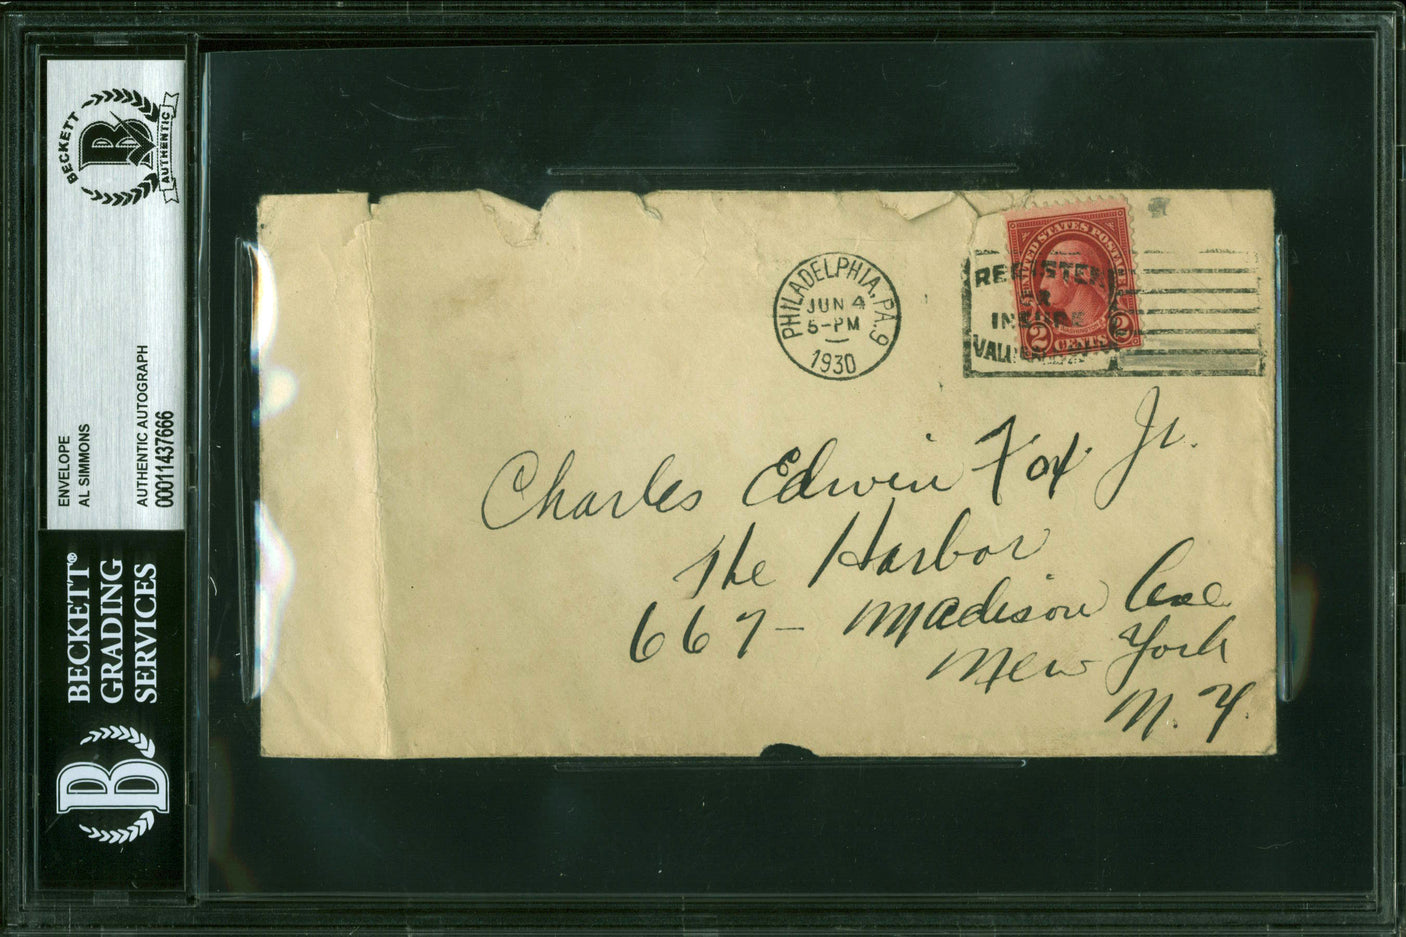 BECKETT
AUTHENTIC
B
ENVELOPE
AL SIMMONS
AUTHENTIC AUTOGRAPH
00011437666
BECKETT®
GRADING
SERVICES
B
PHILADELPHIA, PA. 9
JUN 4
5-PM
1930
UNITED STATES POSTAGE
2 CENTS 2
REGISTER
OR
INSURE
Charles Edwin Fox Jr.
The Harbor
667- Madison Ave
New York
N. Y.